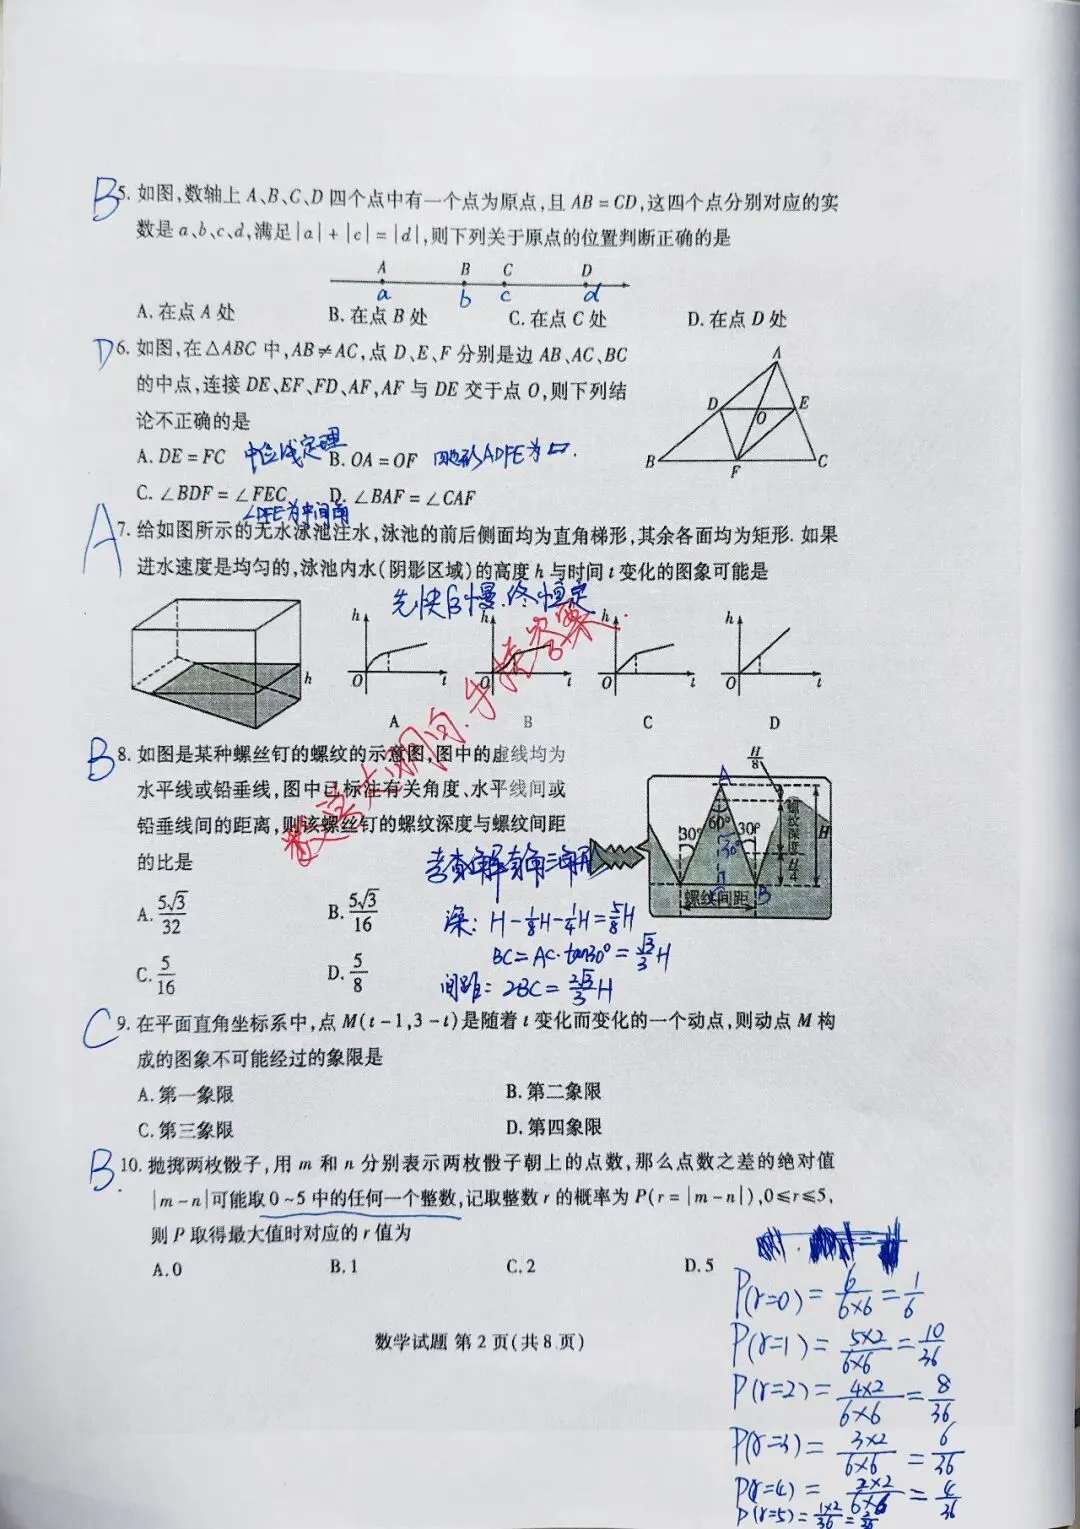 B 5. 如图,数轴上 A、B、C、D 四个点中有一个点为原点,且 AB = CD,这四个点分别对应的实
数是 a、b、c、d,满足|a| + |c| = |d|,则下列关于原点的位置判断正确的是
A B C D
a b c d
A. 在点 A 处 B. 在点 B 处 C. 在点 C 处 D. 在点 D 处
D 6. 如图,在△ABC 中,AB≠AC,点 D、E、F 分别是边 AB、AC、BC
的中点,连接 DE、EF、FD、AF,AF 与 DE 交于点 O,则下列结
论不正确的是
A. DE = FC 中位线定理 B. OA = OF 四边形ADFE为▱.
C. ∠BDF = ∠FEC D. ∠BAF = ∠CAF
∠DFE为中间角
A D O E B F C
A 7. 给如图所示的无水泳池注水,泳池的前后侧面均为直角梯形,其余各面均为矩形. 如果
进水速度是均匀的,泳池内水(阴影区域)的高度 h 与时间 t 变化的图象可能是
先快后慢.终恒定.
h
h O t A
h O t B
h O t C
h O t D
B 8. 如图是某种螺丝钉的螺纹的示意图,图中的虚线均为
水平线或铅垂线,图中已标注有关角度、水平线间或
铅垂线间的距离,则该螺丝钉的螺纹深度与螺纹间距
的比是
A. 5√3/32 B. 5√3/16
C. 5/16 D. 5/8
H/8 A 60° 30° 30° 30° 螺纹深度 H H/4 C B 螺纹间距
深: H-1/8H-1/4H=5/8H
BC=AC·tan30°=√3/3H
间距: 2BC=2√3/3H
C 9. 在平面直角坐标系中,点 M(t-1,3-t)是随着 t 变化而变化的一个动点,则动点 M 构
成的图象不可能经过的象限是
A. 第一象限 B. 第二象限
C. 第三象限 D. 第四象限
B 10. 抛掷两枚骰子,用 m 和 n 分别表示两枚骰子朝上的点数,那么点数之差的绝对值
|m-n|可能取 0~5 中的任何一个整数,记取整数 r 的概率为 P(r=|m-n|),0≤r≤5,
则 P 取得最大值时对应的 r 值为
A. 0 B. 1 C. 2 D. 5
P(r=0)=6/6×6=1/6
P(r=1)=5×2/6×6=10/36
P(r=2)=4×2/6×6=8/36
P(r=3)=3×2/6×6=6/36
P(r=4)=2×2/6×6=4/36
P(r=5)=1×2/36=2/36
数学试题 第 2 页(共 8 页)